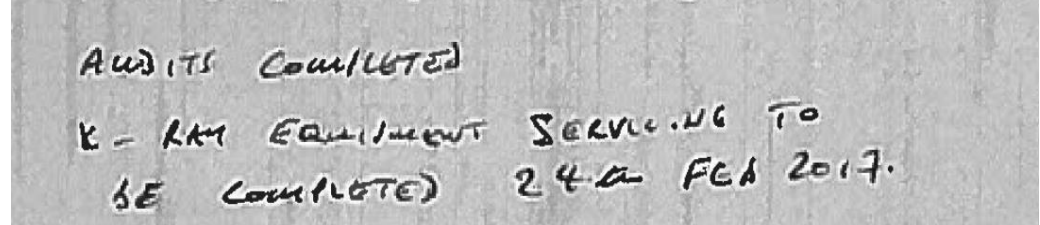 AUDITS COMPLETED
X - RAY EQUIPMENT SERVICING TO
BE COMPLETED 24th FEB 2017.